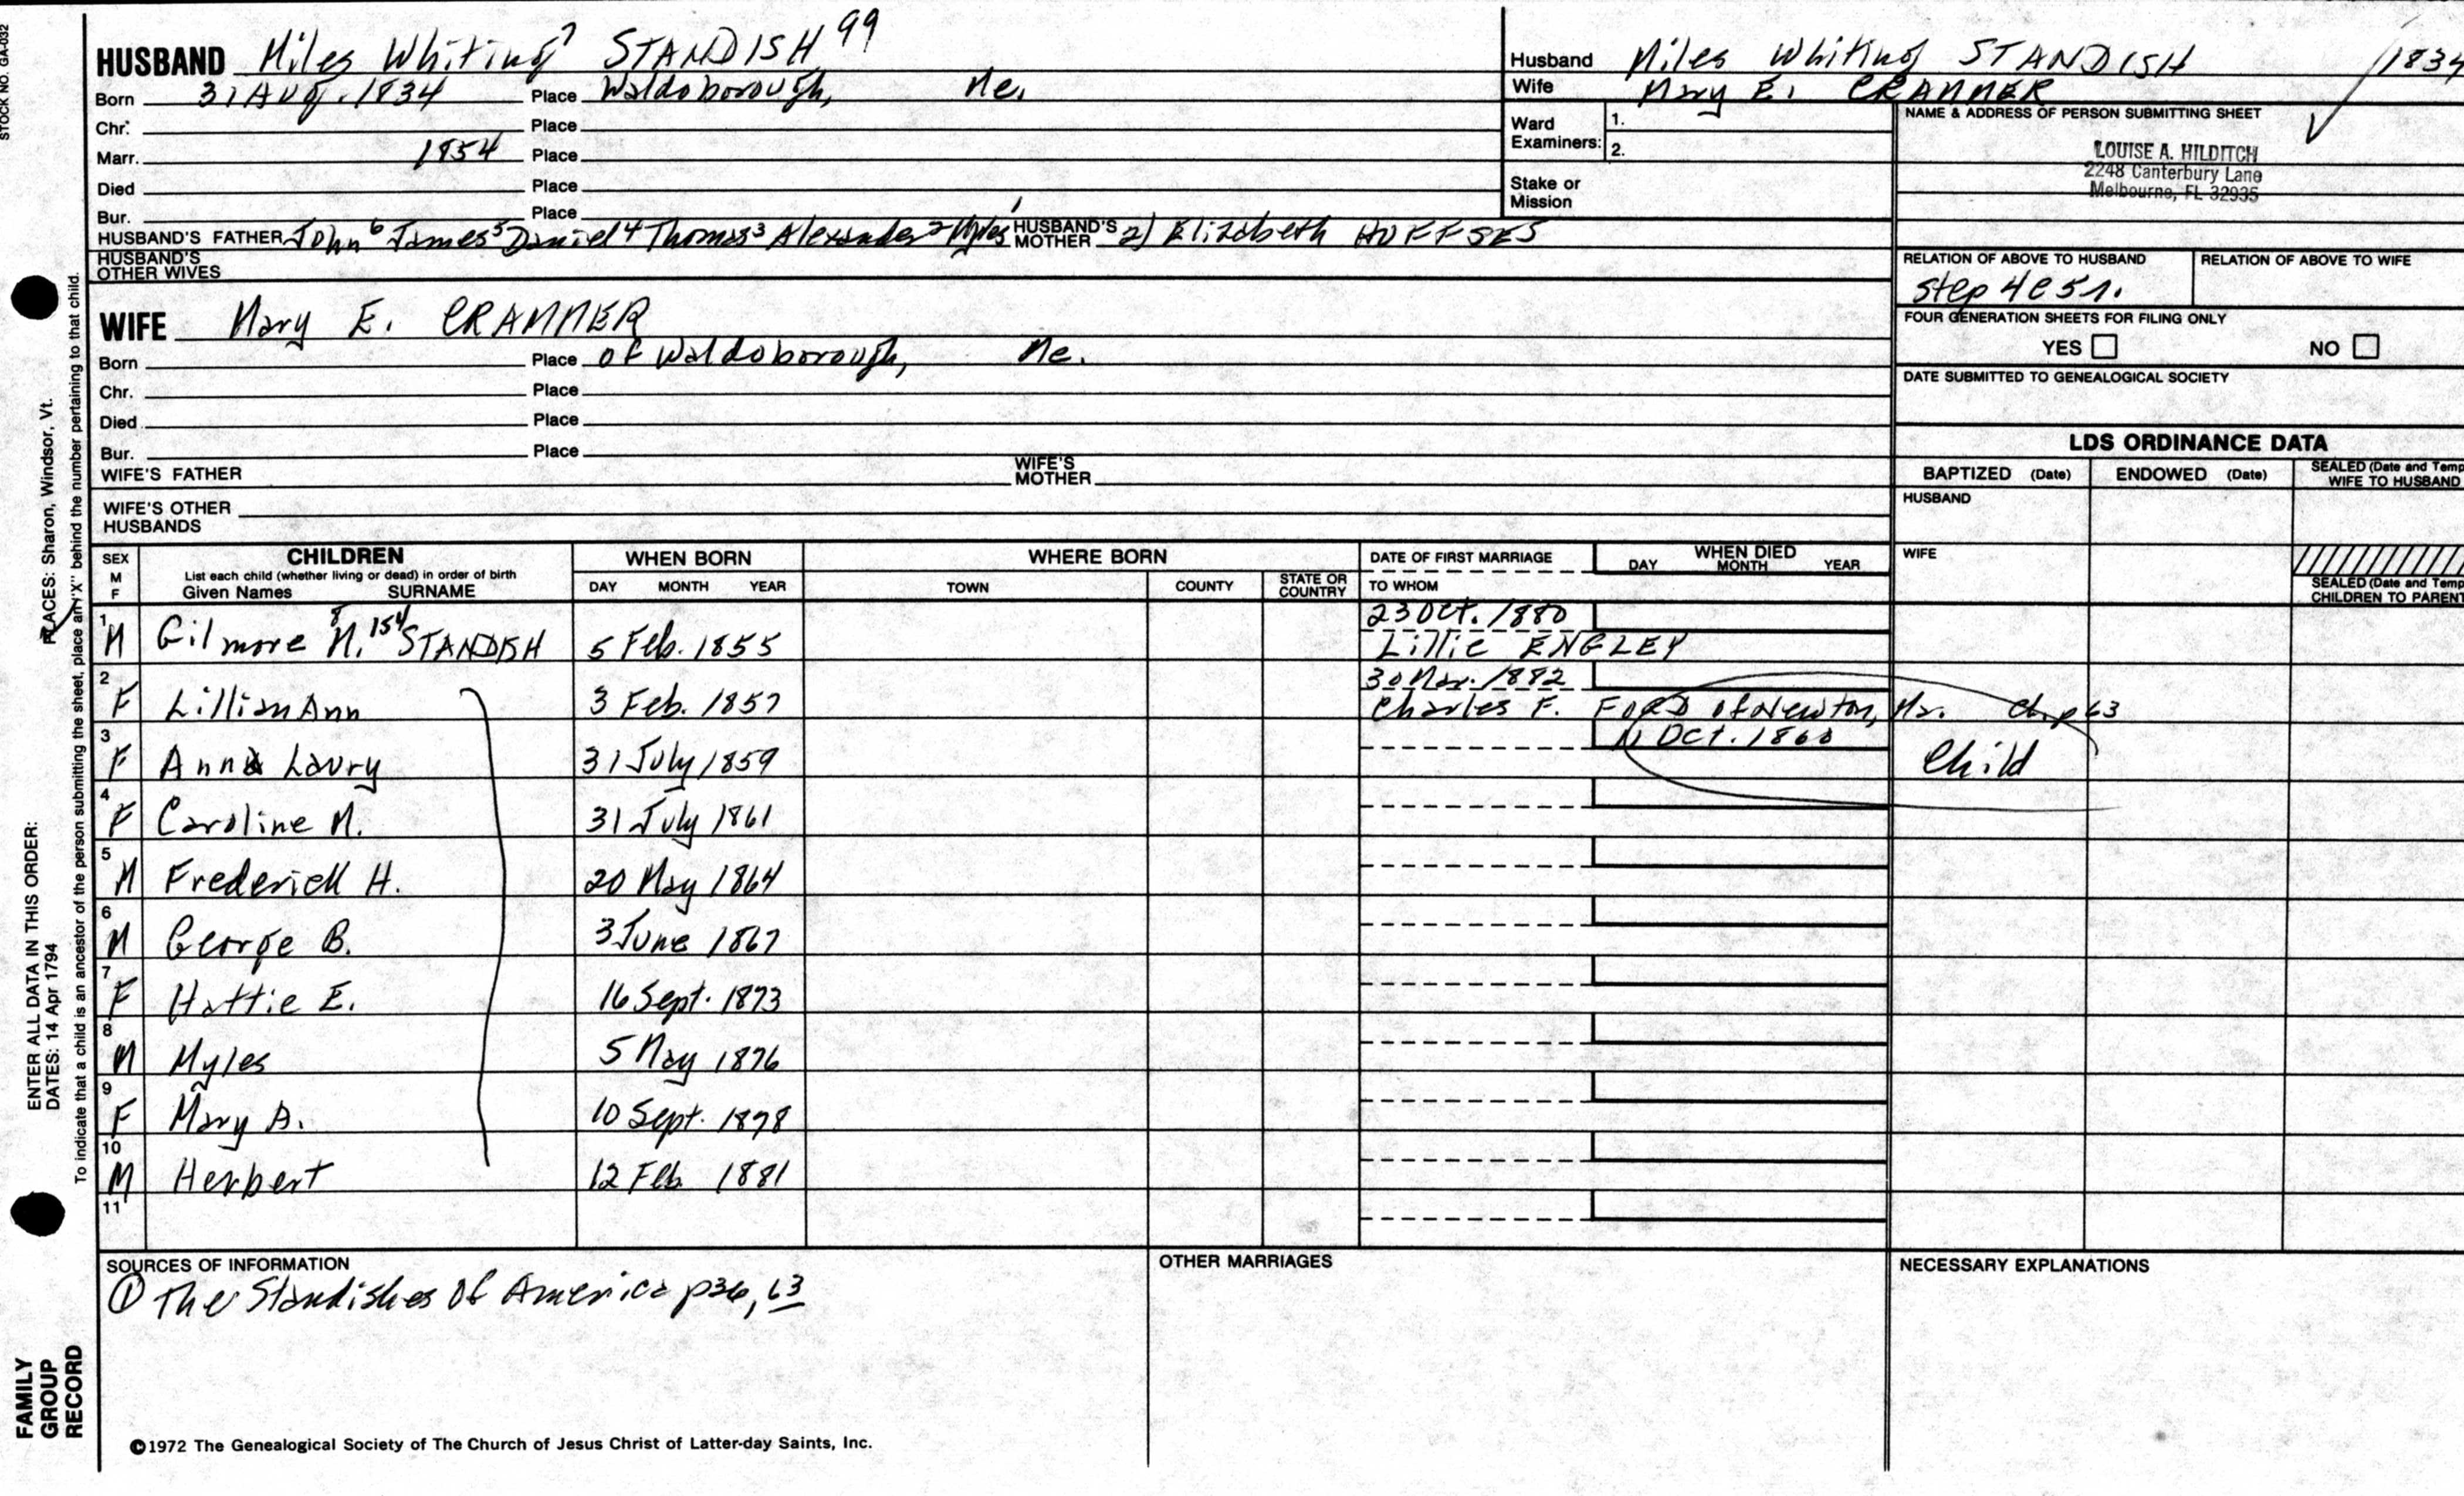 STOCK NO. GA-032
HUSBAND Miles Whiting 7 STANDISH 99
Born 31 Aug. 1834 Place Waldoborough, Me.
Chr. Place
Marr. 1854 Place
Died Place
Bur. Place
HUSBAND'S FATHER John 6 James 5 Daniel 4 Thomas 3 Alexander 2 Myles 1 HUSBAND'S MOTHER 2) Elizabeth HUFFSES
HUSBAND'S OTHER WIVES
WIFE Mary E. CRAMMER
Born Place of Waldoborough, Me.
Chr. Place
Died Place
Bur. Place
WIFE'S FATHER WIFE'S MOTHER
WIFE'S OTHER HUSBANDS
Husband Miles Whiting STANDISH 1834
Wife Mary E. CRAMMER
Ward Examiners: 1.
2.
Stake or Mission
NAME & ADDRESS OF PERSON SUBMITTING SHEET
LOUISE A. HILDITCH
2248 Canterbury Lane
Melbourne, FL 32935
RELATION OF ABOVE TO HUSBAND RELATION OF ABOVE TO WIFE
step 4c5r.
FOUR GENERATION SHEETS FOR FILING ONLY
YES NO
DATE SUBMITTED TO GENEALOGICAL SOCIETY
LDS ORDINANCE DATA
BAPTIZED (Date) ENDOWED (Date) SEALED (Date and Temp WIFE TO HUSBAND
HUSBAND
WIFE
SEALED (Date and Temp CHILDREN TO PARENT
SEX M F CHILDREN WHEN BORN WHERE BORN DATE OF FIRST MARRIAGE WHEN DIED
List each child (whether living or dead) in order of birth
Given Names SURNAME DAY MONTH YEAR TOWN COUNTY STATE OR COUNTRY TO WHOM DAY MONTH YEAR
23 Oct. 1880
1 M Gilmore M. 8 154 STANDISH 5 Feb. 1855 Lillie ENGLEY
30 Mar. 1882
2 F Lillian Ann 3 Feb. 1857 Charles F. FORD of Newton, Ma. ch p63
11 Oct. 1860
3 F Anna Laury 31 July 1859 Child
4 F Caroline M. 31 July 1861
5 M Frederick H. 20 May 1864
6 M George B. 3 June 1867
7 F Hattie E. 16 Sept. 1873
8 M Myles 5 May 1876
9 F Mary A. 10 Sept. 1878
10 M Herbert 12 Feb 1881
11
SOURCES OF INFORMATION OTHER MARRIAGES NECESSARY EXPLANATIONS
① The Standishes of America p36, 63
©1972 The Genealogical Society of The Church of Jesus Christ of Latter-day Saints, Inc.
FAMILY GROUP RECORD
ENTER ALL DATA IN THIS ORDER:
DATES: 14 Apr 1794
PLACES: Sharon, Windsor, Vt.
To indicate that a child is an ancestor of the person submitting the sheet, place an "X" behind the number pertaining to that child.